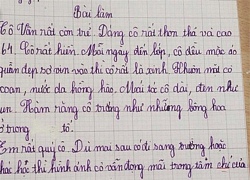 Bài làm
Cô Vân rất còn trẻ. Dáng cô rất thon thả và cao
1m. Cô rất hiền. Mỗi ngày đến lớp, cô đều mặc áo
quần đẹp sơ vin vào thì cô rất là xinh. Khuôn mặt cô
coan, nước da hồng hào. Mái tóc cô dài, đen như
un. Hàm răng cô trắng như những bông hoa
ở trong tô.
Em rất quý cô. Dù mai sau có đi sang trường hoặc
hác học thì hình ảnh cô vẫn đọng mãi trong tâm chí của